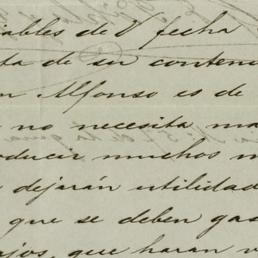 iables de V fecha
ta de su conteni
n Alfonso es de
no necesita ma
oducir muchos m
dejarán utilidad
que se deben gas
ajos, que haran v